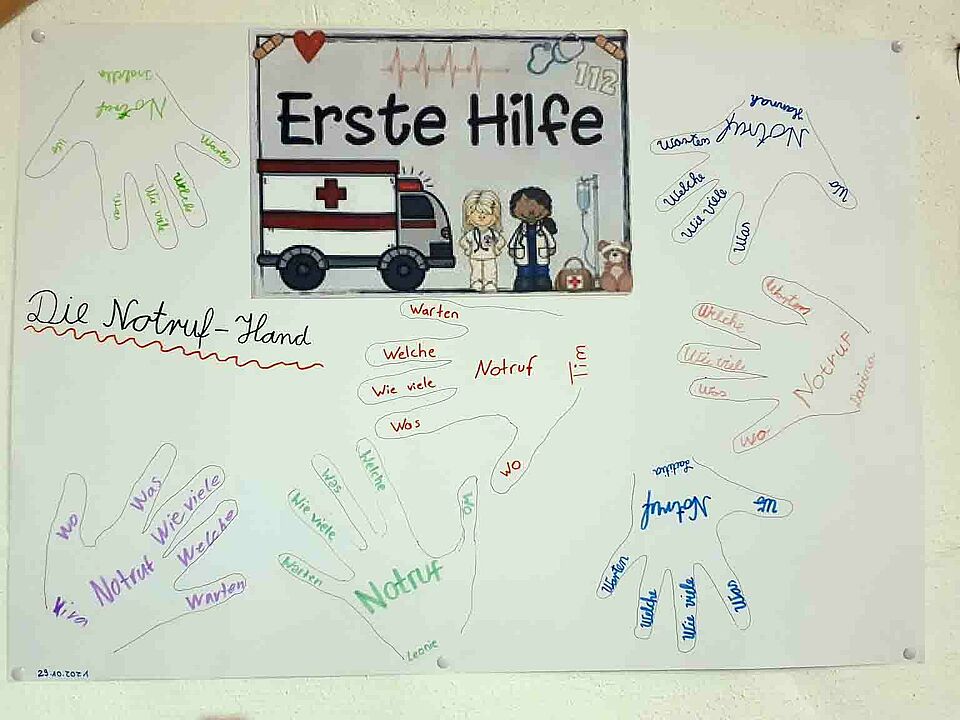 112
Erste Hilfe
Die Notruf-Hand
Isabella
Notruf
Wo
Was
Wie viele
Welche
Warten
Hannah
Notruf
Warten
Welche
Wie viele
Was
Wo
Warten
Welche
Wie viele
Was
Wo
Notruf
Emilia
Warten
Welche
Wie viele
Was
Wo
Notruf
Wo
Was
Wie viele
Welche
Warten
Notruf
Kira
Welche
Was
Wie viele
Warten
Wo
Notruf
Leonie
Notruf
Wo
Warten
Welche
Wie viele
Was
29.10.2021